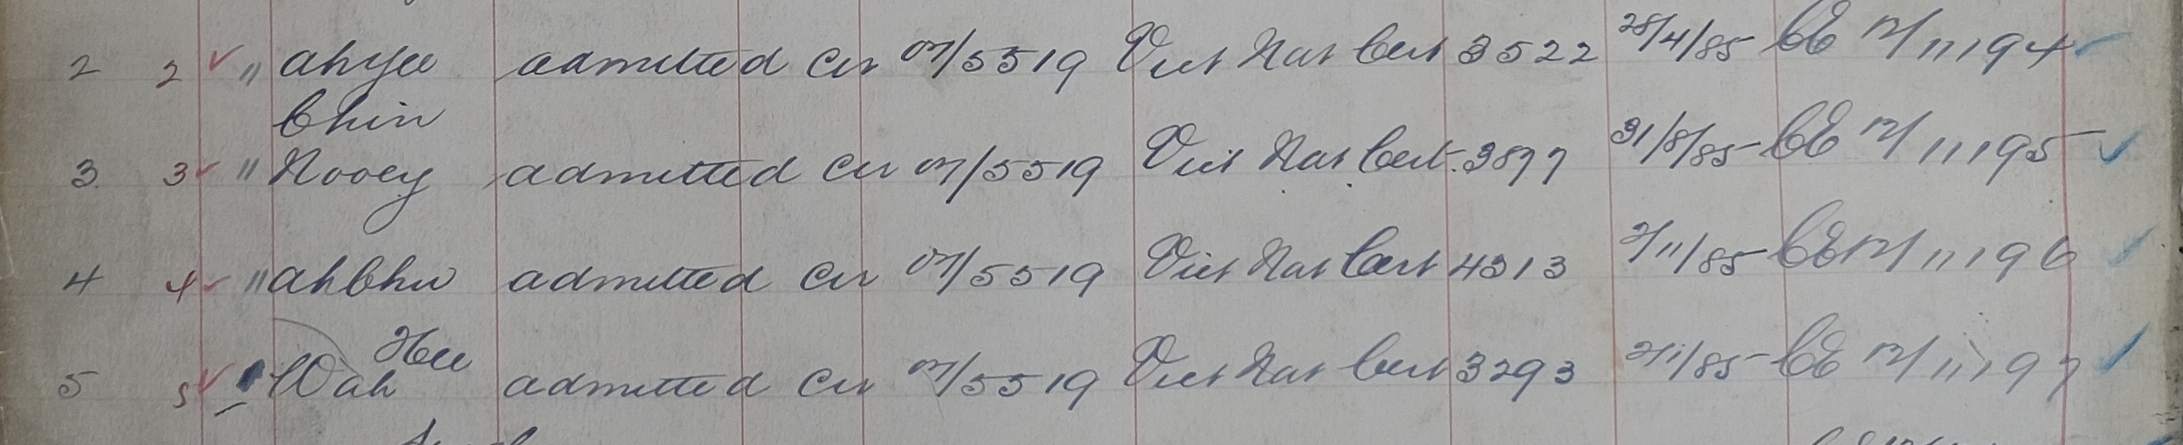 2 2 " ah Yee admitted Cer 07/5519 Vict Nat Cert 3522 28/4/85 CE 12/11194
Chin
3 3 " Nooey admitted Cer 07/5519 Vict Nat Cert. 3877 31/8/85 CE 12/11195
4 4 " ah Chu admitted Cer 07/5519 Vict Nat Cert 4313 2/11/85 CE 12/11196
Hee
5 5 Wah admitted Cer 07/5519 Vict Nat Cert 3293 CE 12/11197